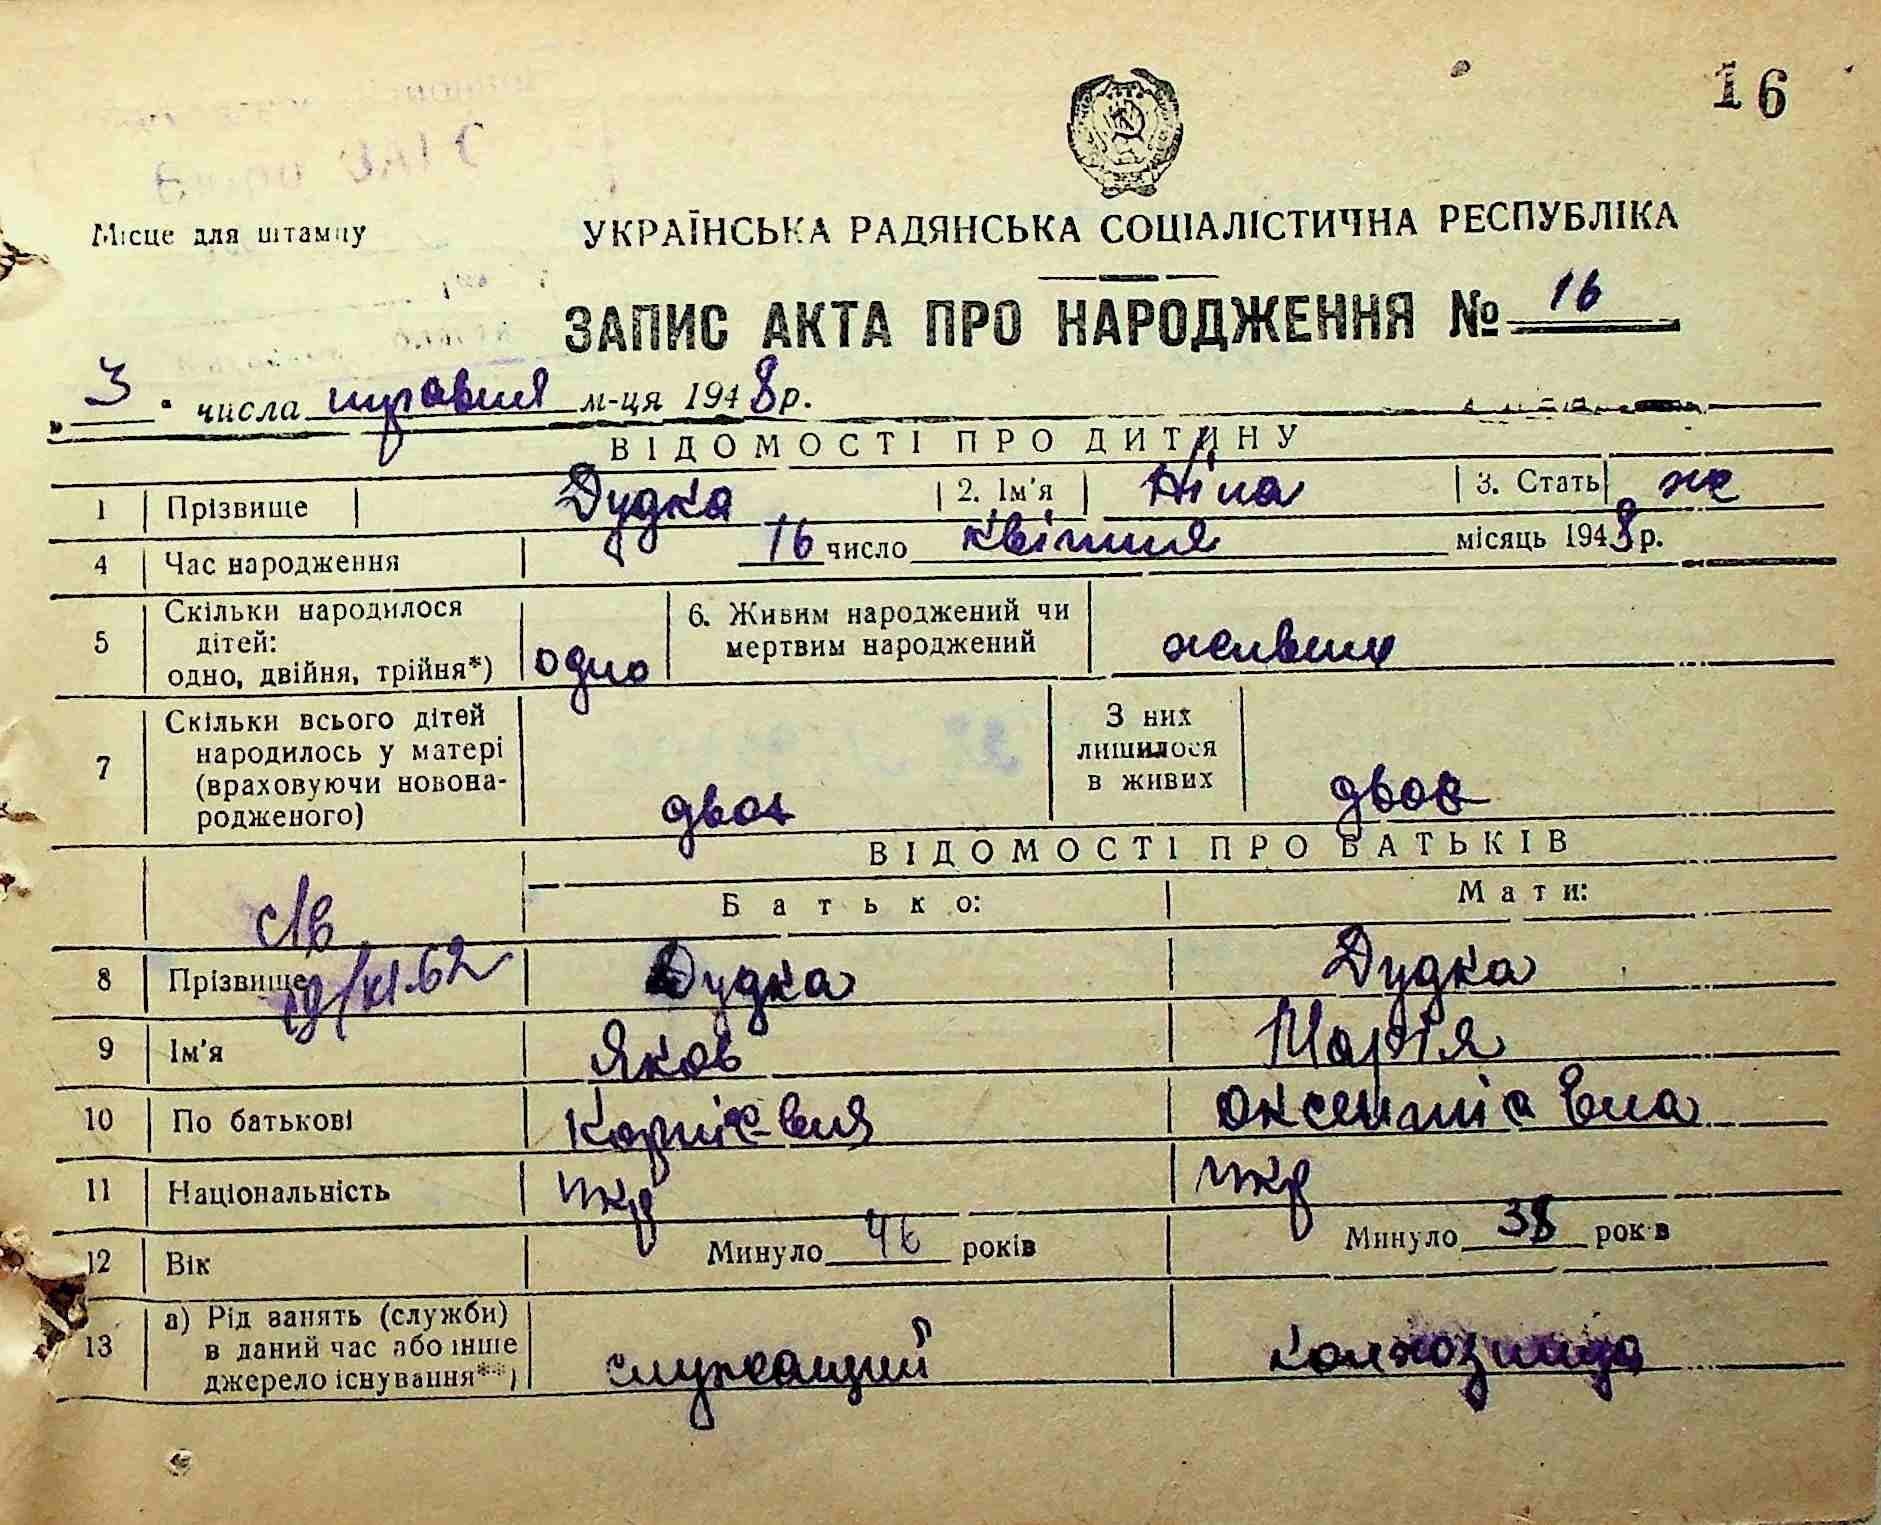 16
Бюро ЗАГС
Місце для штампу
УКРАЇНСЬКА РАДЯНСЬКА СОЦІАЛІСТИЧНА РЕСПУБЛІКА
ЗАПИС АКТА ПРО НАРОДЖЕННЯ № 16
„ 3 " числа травня м-ця 1948 р.
ВІДОМОСТІ ПРО ДИТИНУ
1 Прізвище Дудка 2. Ім'я Ніна 3. Стать ж
4 Час народження 16 число квітня місяць 1948 р.
5 Скільки народилося дітей: одно, двійня, трійня*) одно 6. Живим народжений чи мертвим народжений живим
7 Скільки всього дітей народилось у матері (враховуючи новонародженого) двоє З них лишилося в живих двоє
ВІДОМОСТІ ПРО БАТЬКІВ
Батько: Мати:
с/в
8 Прізвище Дудка Дудка
9 Ім'я Яков Марія
10 По батькові Корнієвич Оксентієвна
11 Національність Укр Укр
12 Вік Минуло 46 років Минуло 38 рок в
13 а) Рід занять (служби) в даний час або інше джерело існування**) служащий колхозница